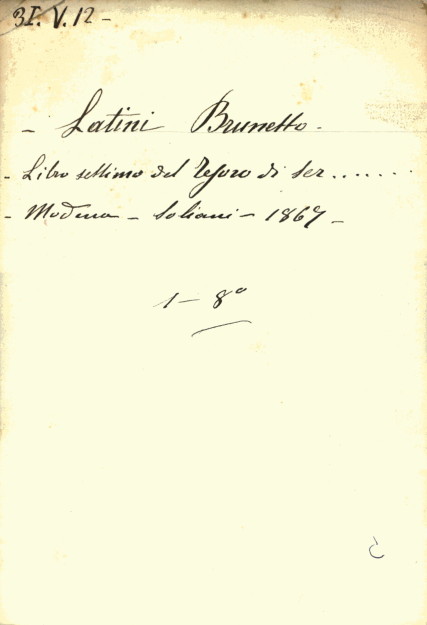 3I. V. 12 -
- Latini Brunetto -
- Libro settimo del Tesoro di Ser.......
- Modena - Soliani - 1867 -
1 - 8°